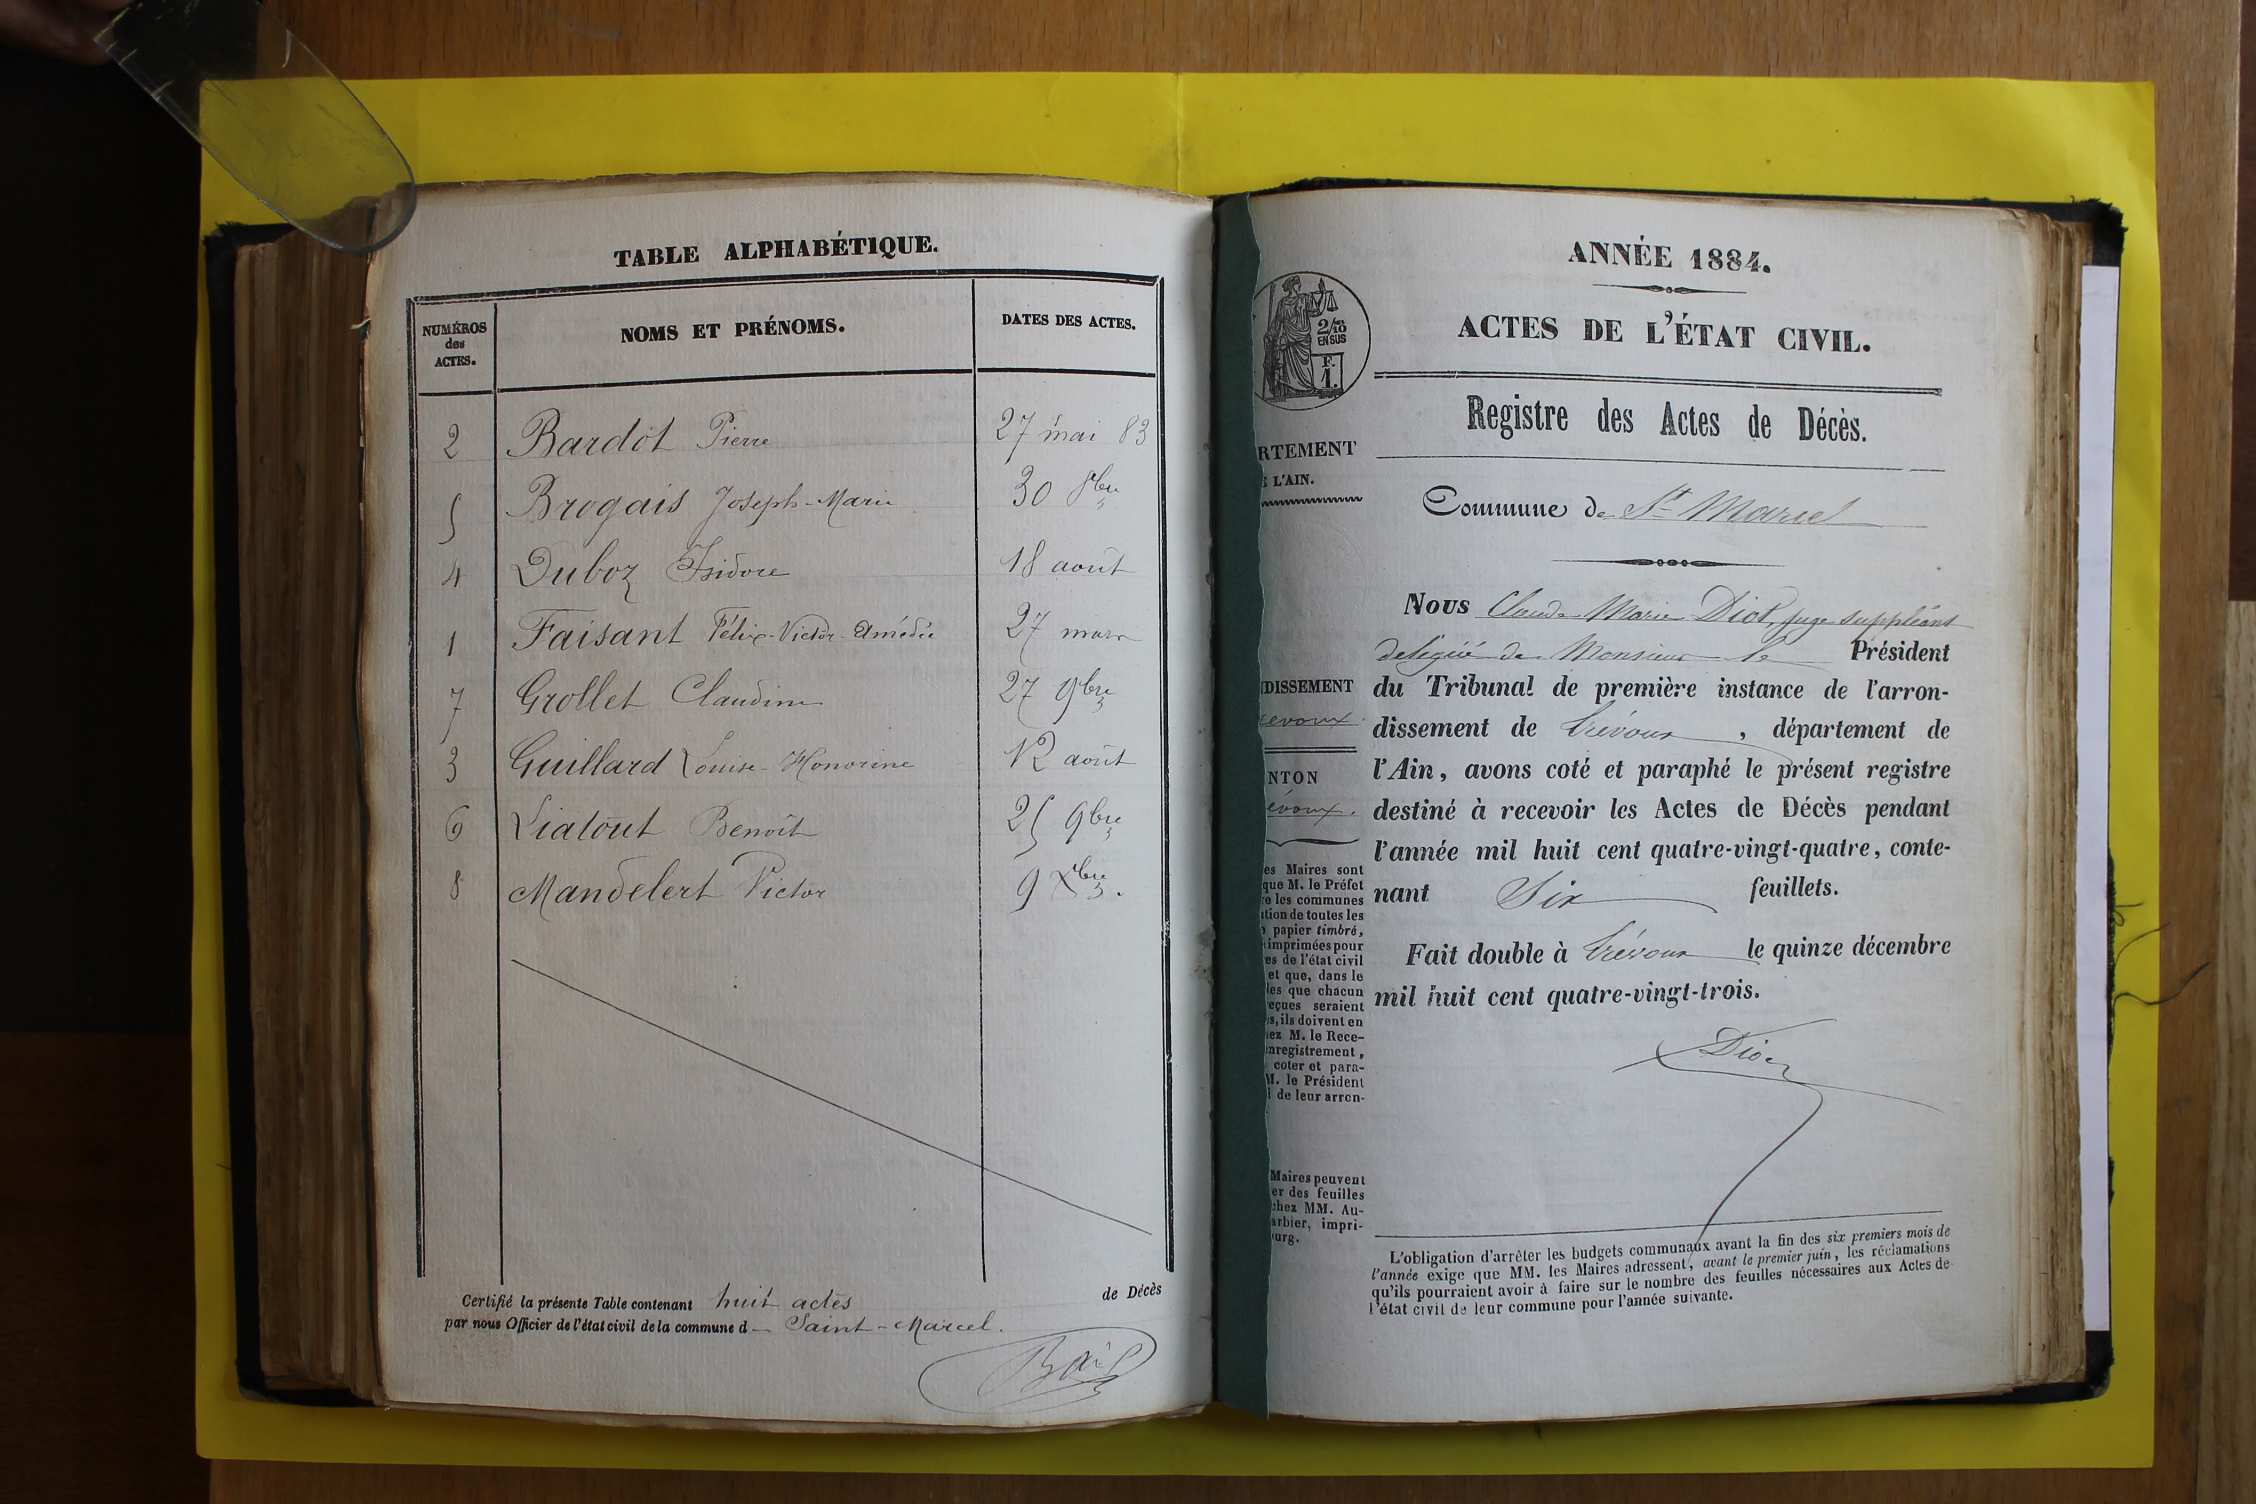 TABLE ALPHABÉTIQUE.
NUMÉROS
des
ACTES.
NOMS ET PRÉNOMS.
DATES DES ACTES.
2 Bardot Pierre 27 mai 83
5 Brogais Joseph-Marie 30 8bre
4 Duboz Isidore 18 août
1 Faisant Félix-Victor-Amédée 27 mars
7 Grollet Claudine 27 9bre
3 Guillard Louise-Honorine 12 août
6 Liatout Benoît 25 9bre
8 Mandelert Victor 9 Xbre.
Certifié la présente Table contenant huit actes de Décès
par nous Officier de l'état civil de la commune d Saint-Marcel.
ANNÉE 1884.
ACTES DE L'ÉTAT CIVIL.
Registre des Actes de Décès.
Commune de St Marcel
Nous Claude Marie Diot, juge suppléant
délégué de Monsieur le Président
du Tribunal de première instance de l'arron-
dissement de Trévoux, département de
l'Ain, avons coté et paraphé le présent registre
destiné à recevoir les Actes de Décès pendant
l'année mil huit cent quatre-vingt-quatre, conte-
nant Six feuillets.
Fait double à Trévoux le quinze décembre
mil huit cent quatre-vingt-trois.
Diot
L'obligation d'arrêter les budgets communaux avant la fin des six premiers mois de
l'année exige que MM. les Maires adressent, avant le premier juin, les réclamations
qu'ils pourraient avoir à faire sur le nombre des feuilles nécessaires aux Actes de
l'état civil de leur commune pour l'année suivante.
2/10
EN SUS
F.
1.
RTEMENT
E L'AIN.
NDISSEMENT
revoux.
NTON
évoux.
es Maires sont
que M. le Préfet
re les communes
ation de toutes les
papier timbré,
imprimées pour
es de l'état civil
et que, dans le
les que chacun
reçues seraient
s, ils doivent en
hez M. le Rece-
nregistrement,
coter et para-
M. le Président
l de leur arron-
Maires peuvent
er des feuilles
chez MM. Au-
arbier, impri-
urg.